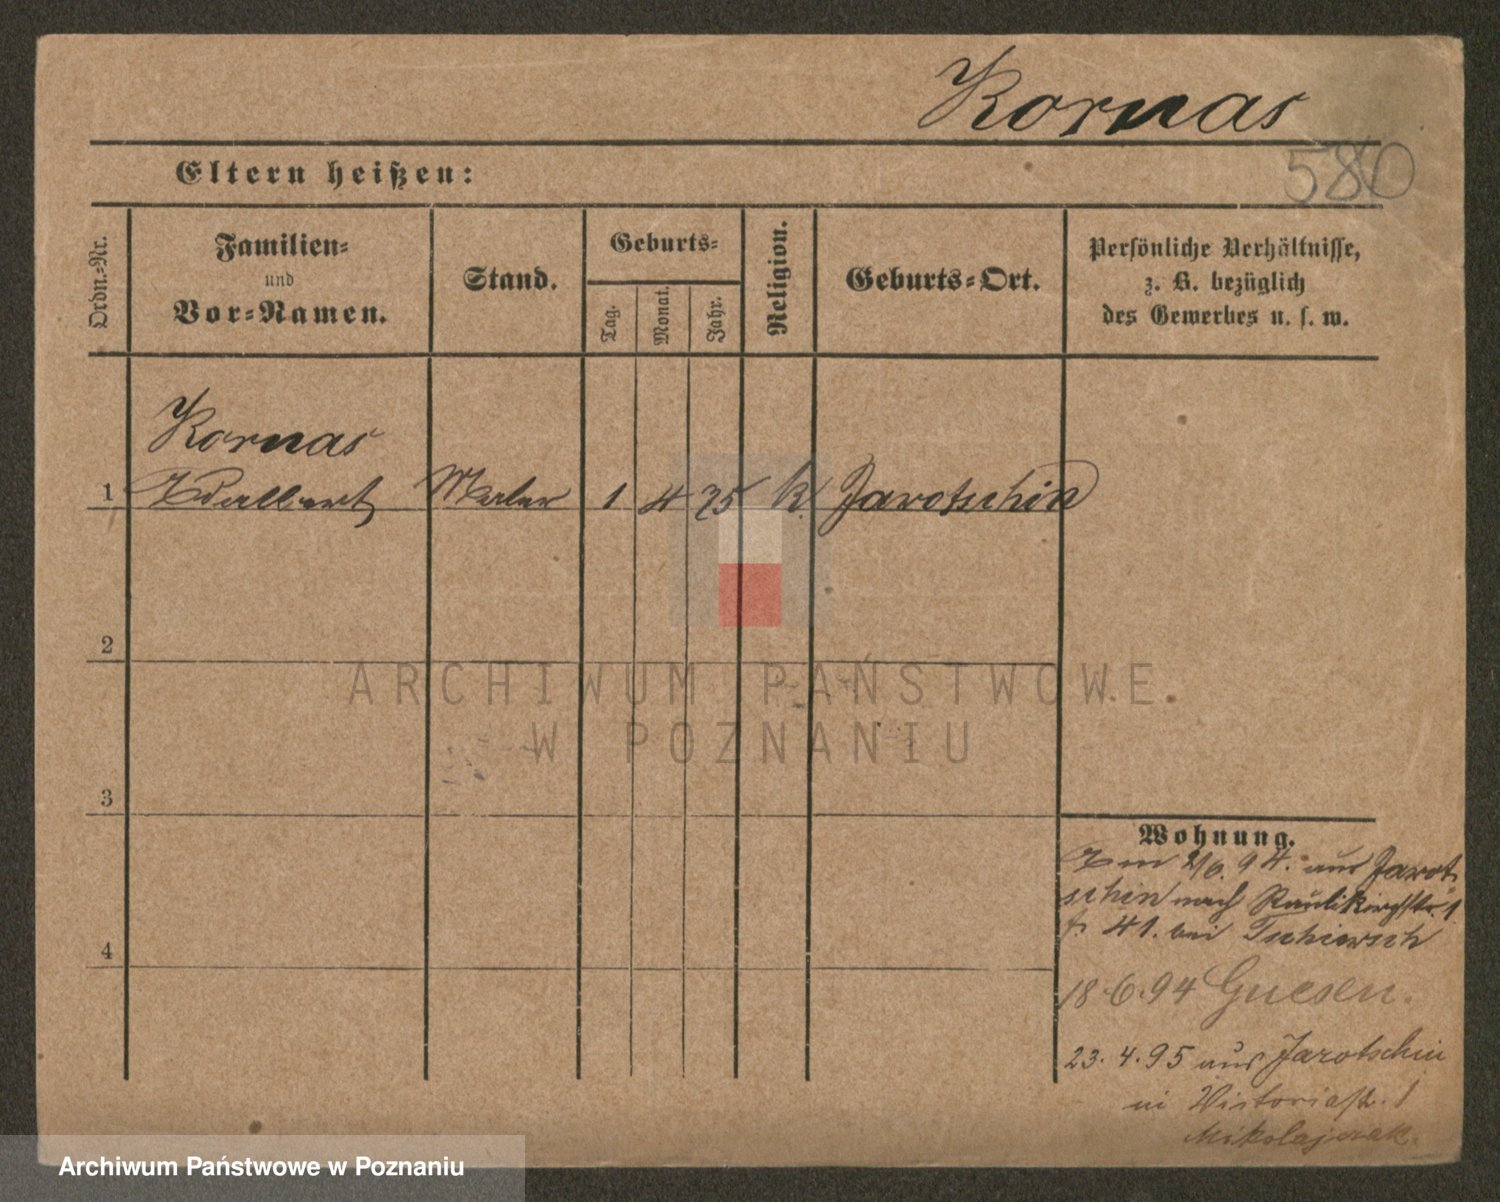 Kornas
580
Eltern heißen:
Ordn.-Nr.
Familien-
und
Vor-Namen.
Stand.
Geburts-
Tag.
Monat.
Jahr.
Religion.
Geburts-Ort.
Persönliche Verhältnisse,
z. B. bezüglich
des Gewerbes u. s. w.
Kornas
1 Adalbert Maler 1 4 75 k. Jarotschin
2
ARCHIWUM PAŃSTWOWE
W POZNANIU
3
Wohnung.
2/6. 94. aus Jarot
schin nach Paulikirchstr. 1
41. bei Tschiersch
4
18.6.94 Gnesen.
23.4.95 aus Jarotschin
Victoriastr. 1
Mikolajczak.
Archiwum Państwowe w Poznaniu